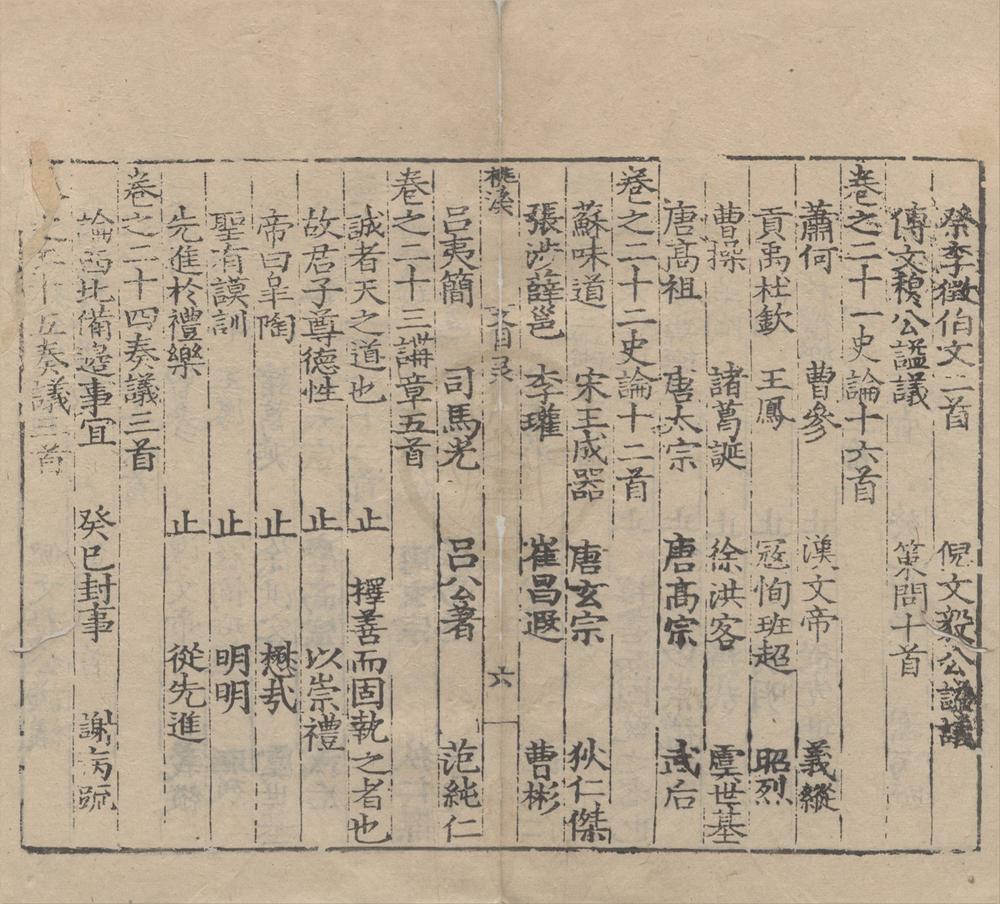 祭李徵伯文二首 倪文毅公謚議
傅文穆公謚議 策問十首
卷之二十一史論十六首
蕭何 曹參 漢文帝 義縱
貢禹杜欽 王鳳 寇恂班超 昭烈
曹操 諸葛誕 徐洪客 虞世基
唐髙祖 唐太宗 唐髙宗 武后
卷之二十二史論十二首
蘇味道 宋王成器 唐玄宗 狄仁傑
張涉薛邕 李瓘 崔昌遐 曹彬
桃溪 文目录 六
呂夷簡 司馬光 呂公著 范純仁
卷之二十三講章五首
誠者天之道也 止 擇善而固執之者也
故君子尊德性 止 以崇禮
帝曰皐陶 止 懋哉
聖有謨訓 止 明明
先進於禮樂 止 從先進
卷之二十四奏議三首
論西北備邊事宜 癸巳封事 謝病疏
之二十五奏議三首